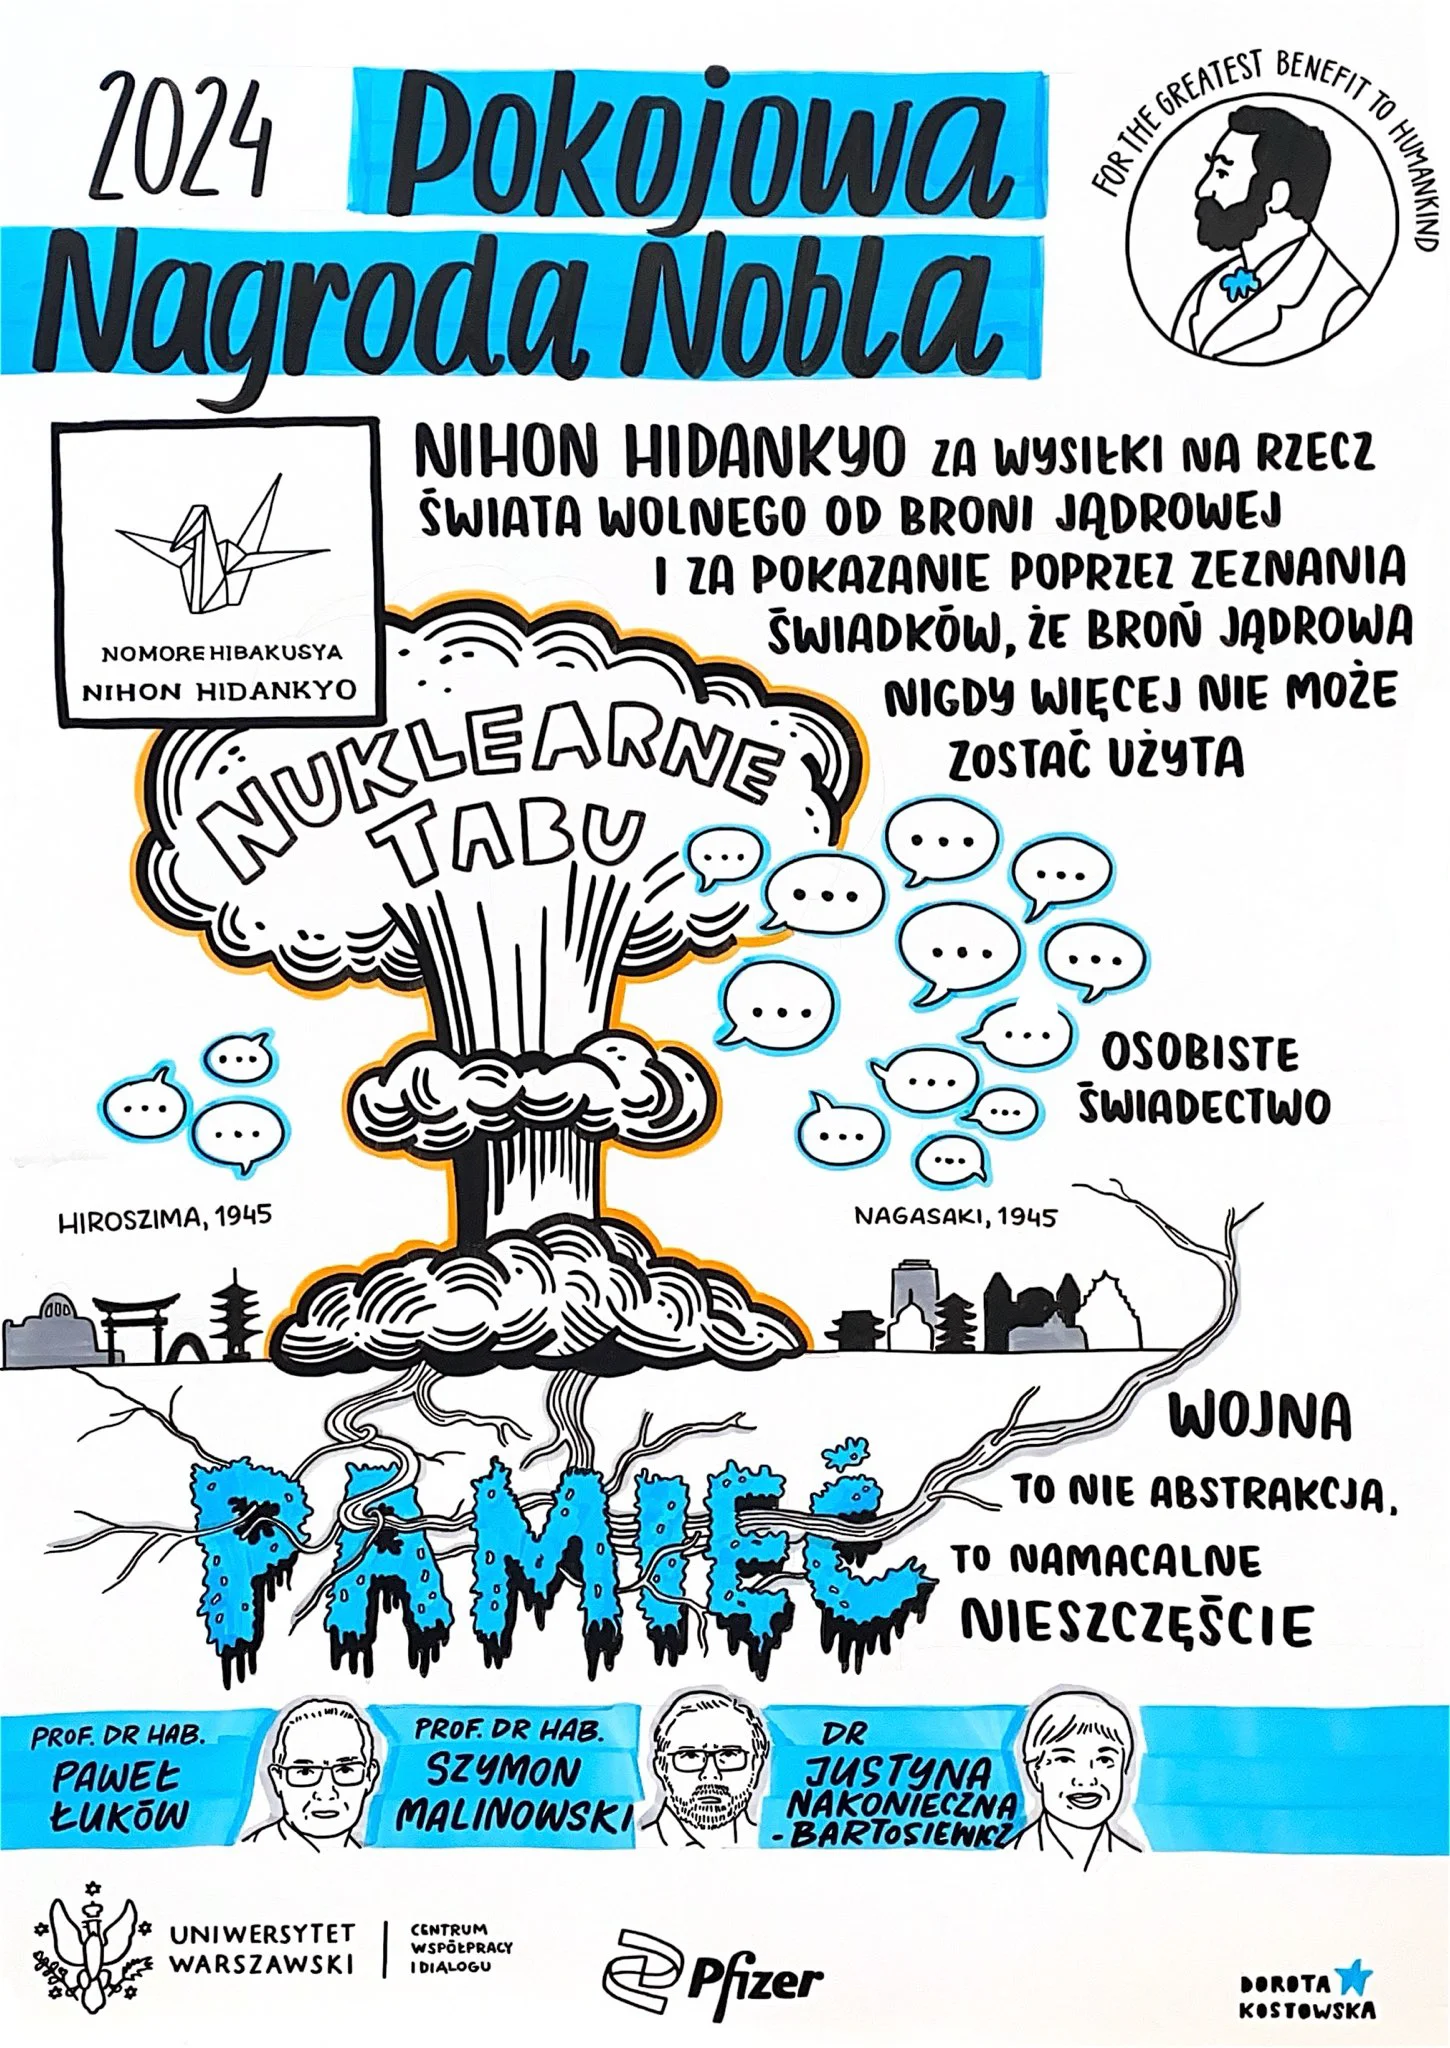 2024 Pokojowa
Nagroda Nobla
FOR THE GREATEST BENEFIT TO HUMANKIND
NIHON HIDANKYO ZA WYSIŁKI NA RZECZ
ŚWIATA WOLNEGO OD BRONI JĄDROWEJ
I ZA POKAZANIE POPRZEZ ZEZNANIA
ŚWIADKÓW, ŻE BROŃ JĄDROWA
NIGDY WIĘCEJ NIE MOŻE
ZOSTAĆ UŻYTA
NO MORE HIBAKUSYA
NIHON HIDANKYO
NUKLEARNE
TABU
OSOBISTE
ŚWIADECTWO
HIROSZIMA, 1945
NAGASAKI, 1945
PAMIĘĆ
WOJNA
TO NIE ABSTRAKCJA,
TO NAMACALNE
NIESZCZĘŚCIE
PROF. DR HAB.
PAWEŁ
ŁUKÓW
PROF. DR HAB.
SZYMON
MALINOWSKI
DR
JUSTYNA
NAKONIECZNA
-BARTOSIEWICZ
UNIWERSYTET
WARSZAWSKI
CENTRUM
WSPÓŁPRACY
I DIALOGU
Pfizer
DOROTA
KOSTOWSKA